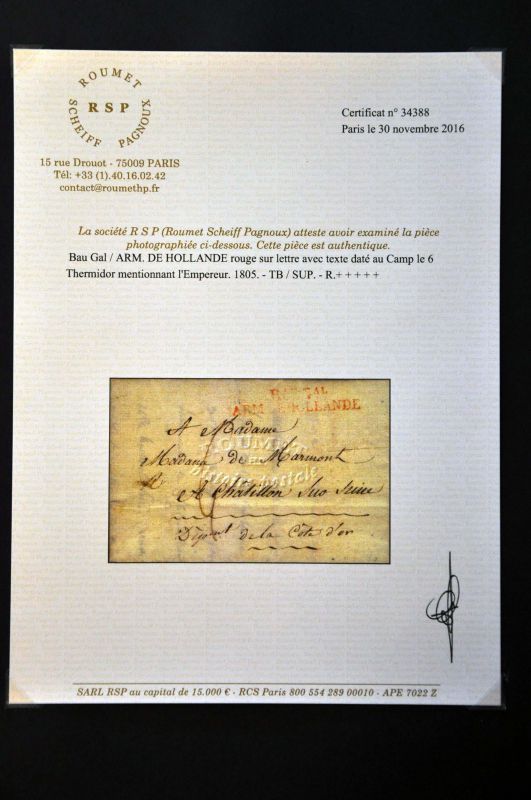 ROUMET
SCHEIFF PAGNOUX
RSP
15 rue Drouot - 75009 PARIS
Tél: +33 (1).40.16.02.42
contact@roumethp.fr
Certificat n° 34388
Paris le 30 novembre 2016
La société R S P (Roumet Scheiff Pagnoux) atteste avoir examiné la pièce
photographiée ci-dessous. Cette pièce est authentique.
Bau Gal / ARM. DE HOLLANDE rouge sur lettre avec texte daté au Camp le 6
Thermidor mentionnant l'Empereur. 1805. - TB / SUP. - R.+ + + + +
GAL
ARM HOLLANDE
A Madame
Madame de Marmont
A Châtillon Sur Seine
Départ de la Côte d'or
SARL RSP au capital de 15.000 € - RCS Paris 800 554 289 00010 - APE 7022 Z